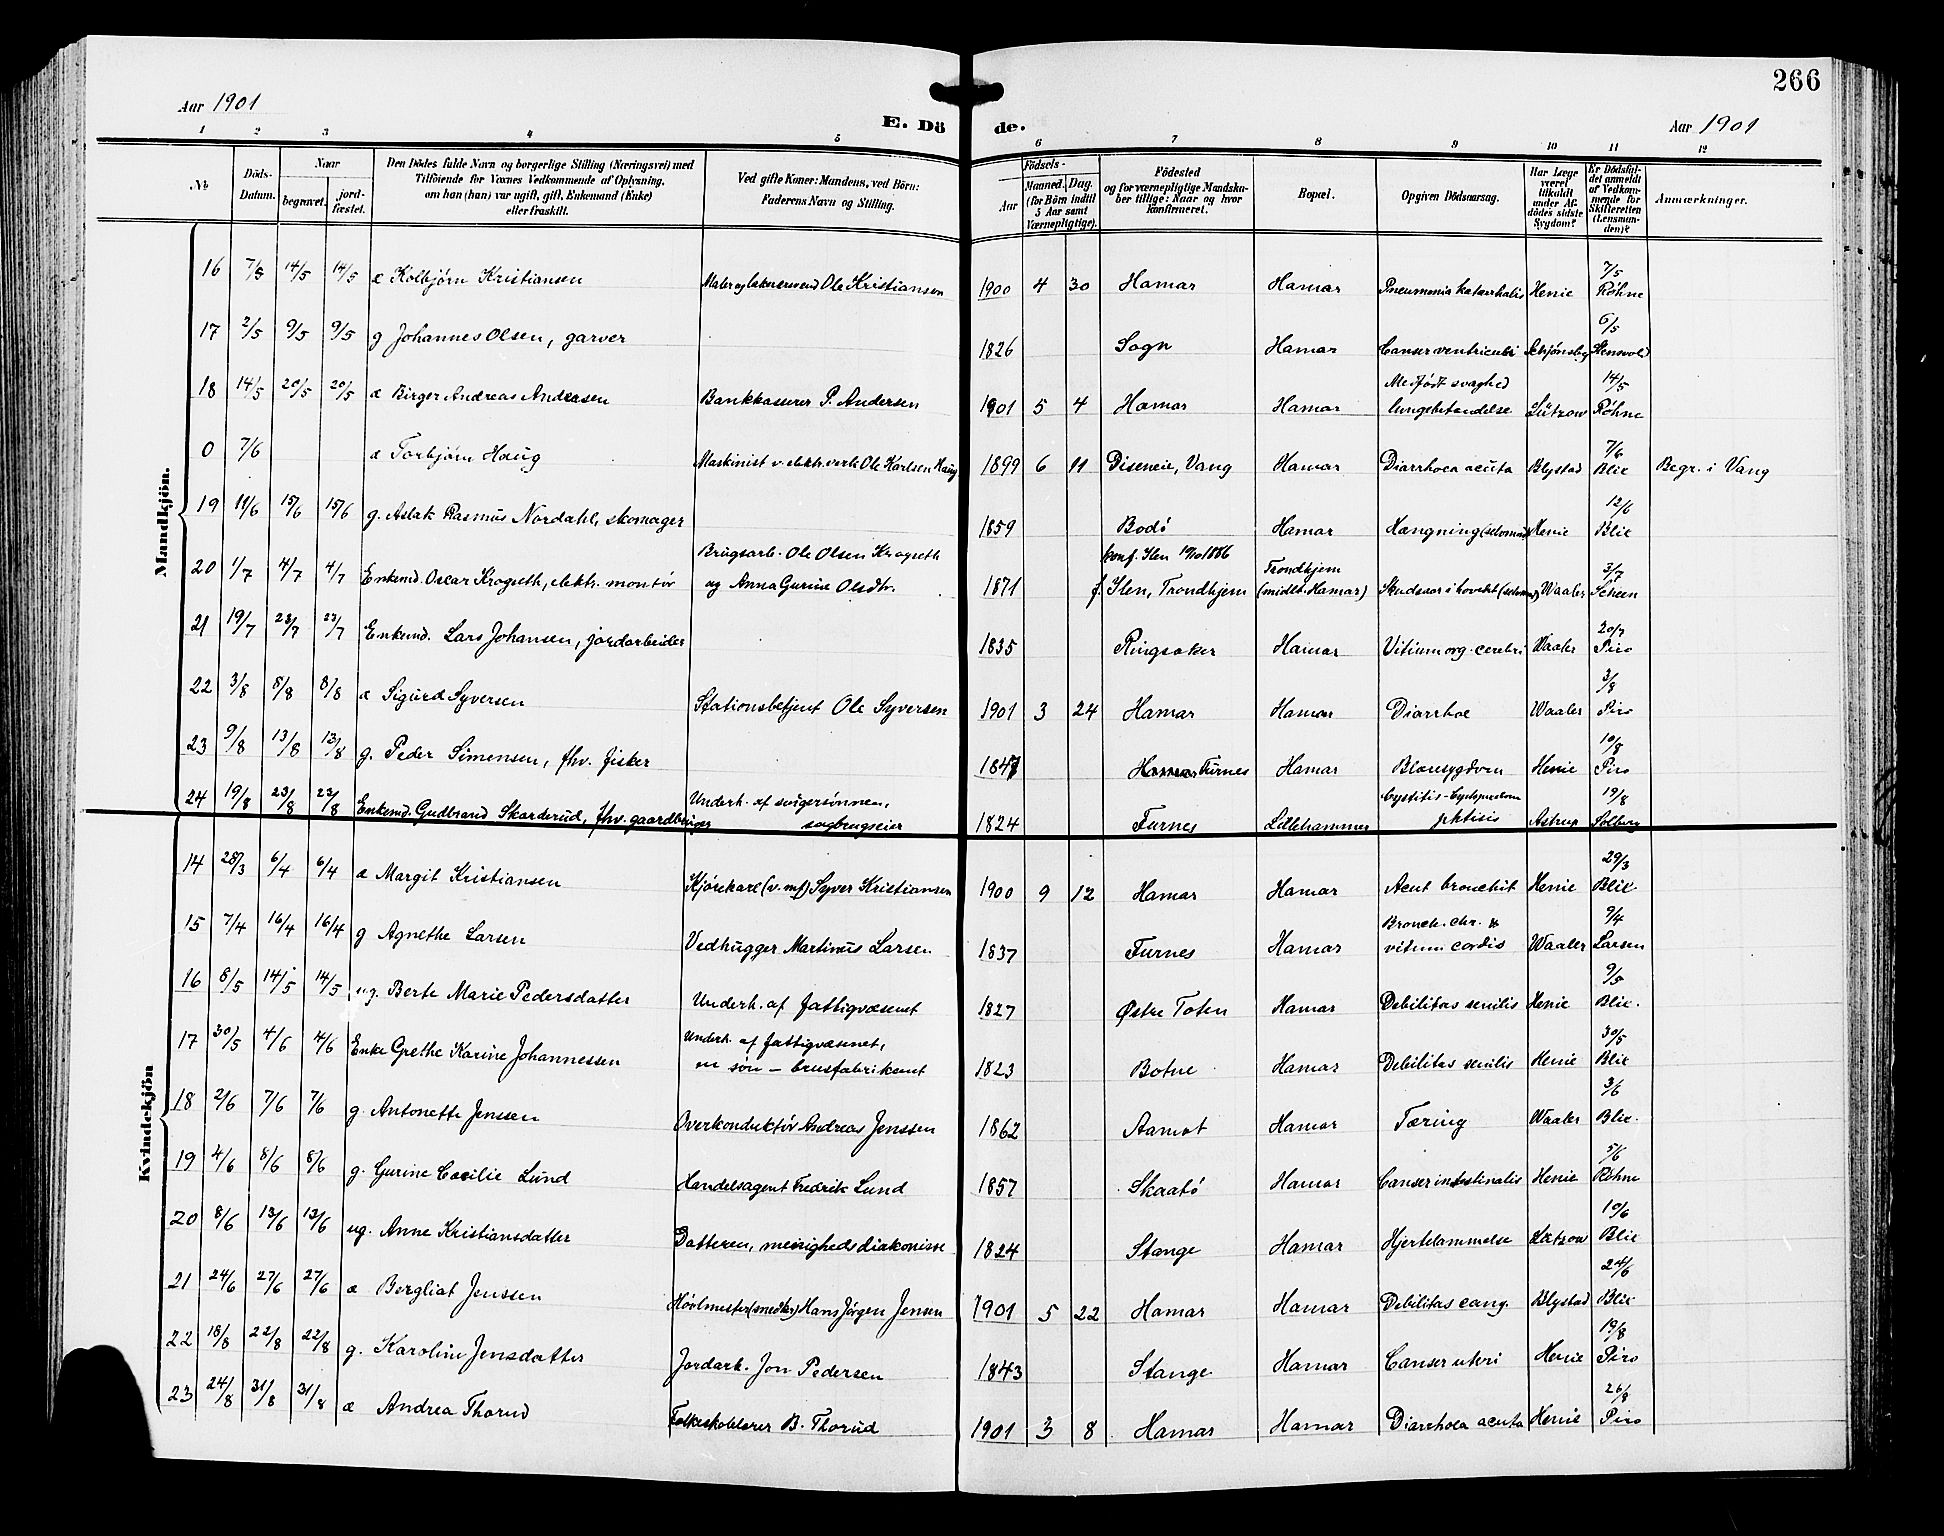 266
Aar 1901
E. Dö de.
Aar 1901
1 2 3 4 5 6 7 8 9 10 11 12
№
Döds-Datum.
Naar
begravet.
jord-fæstet.
Den Dödes fulde Navn og borgerlige Stilling (Næringsvei) med Tilföiende for Voxnes Vedkommende af Oplysning, om han (hun) var ugift, gift, Enkemand (Enke) eller fraskilt.
Ved gifte Koner: Mandens, ved Börn: Faderens Navn og Stilling.
Födsels-
Aar
Maaned. Dag.
(for Börn indtil 5 Aar samt Værnepligtige).
Födested og for værnepligtige Mandska-ber tillige: Naar og hvor konfirmeret.
Bopæl.
Opgiven Dödsaarsag.
Har Læge været tilkaldt under Af-dödes sidste Sygdom?
Er Dödsfal-det anmeldt af Vedkom-mende for Skifteretten (Lensman-den)?
Anmærkninger.
Mandkjön.
16 7/5 14/5 14/5 æ Kolbjørn Kristiansen Maler og laknersvend Ole Kristiansen 1900 4 30 Hamar Hamar Pneumonia katarrhalis Henie 7/5 Röhne
17 2/5 9/5 9/5 g Johannes Olsen, garver 1826 Sogn Hamar Canser ventriculi Schjønsby 6/5 Stensvold
18 14/5 20/5 20/5 æ Birger Andreas Andersen Bankkasserer P. Andersen 1901 5 4 Hamar Hamar Medfödt svaghed lungebetændelse Lützow 14/5 Röhne
0 7/6 æ Torbjørn Haug Maskinist v. elektr. verk Ole Karlsen Haug 1899 6 11 Diseneie, Vang Hamar Diarrhoea acuta Blystad 7/6 Blix Begr. i Vang
19 11/6 15/6 15/6 g. Aslak Rasmus Nordahl, skomager 1859 Bodö Hamar Hængning (selvmord) Henie 12/6 Blix
20 1/7 4/7 4/7 Enkemd. Oscar Krogseth, elektr. montör Brugsarb. Ole Olsen Krogseth og Anna Gurine Olsdtr. 1871 konf. Ilen 1886 f. Ilen, Trondhjem Trondhjem (midlt. Hamar) Skudsaar i hovedet (selvmord) Waaler 3/7 Scheen
21 19/7 23/7 23/7 Enkemd. Lars Johansen, jordarbeider 1835 Ringsaker Hamar Vitium org. cerebri Waaler 20/7 Piro
22 3/8 8/8 8/8 æ Sigurd Syversen Stationsbetjent Ole Syversen 1901 3 24 Hamar Hamar Diarrhoe Waaler 3/8 Piro
23 9/8 13/8 13/8 g. Peder Simensen, fhv. fisker 1847 Hamar Furnes Hamar Blæresygdom Henie 10/8 Piro
24 19/8 23/8 23/8 Enkemd. Gudbrand Skarderud, fhv. gaardbruger Underh. af svigersönnen, sagbrugseier 1824 Furnes Lillehammer Cystitis - phtisis Astrup 19/8 Solberg
Kvindekjön
14 28/3 6/4 6/4 æ Margit Kristiansen Kjörekarl (v. mf) Syver Kristiansen 1900 9 12 Hamar Hamar Acut bronchit Henie 29/3 Blix
15 7/4 16/4 16/4 g Agnethe Larsen Vedhugger Martinus Larsen 1837 Furnes Hamar Bronch. chr. & vitium cordis Waaler 9/4 Larsen
16 8/5 14/5 14/5 ug. Berte Marie Pedersdatter Underh. af fattigvæsenet 1827 Østre Toten Hamar Debilitas senilis Henie 9/5 Blix.
17 30/5 4/6 4/6 Enke Grethe Karine Johannessen Underh. af fattigvæsenet, en sön - brusfabrikant 1823 Botne Hamar Debilitas senilis Henie 30/5 Blix
18 2/6 7/6 7/6 g. Antonette Jenssen Overkonduktör Andreas Jenssen 1862 Aamot Hamar Tæring Waaler 3/6 Blix.
19 4/6 8/6 8/6 g. Gurine Cæcilie Lund Handelsagent Fredrik Lund 1857 Skaatö Hamar Canser intestinalis Henie 5/6 Röhne
20 8/6 13/6 13/6 ug. Anne Kristiansdatter Datteren, menighedsdiakonisse 1824 Stange Hamar Hjertelammelse Lützow 10/6 Blix
21 24/6 27/6 27/6 æ Bergliot Jenssen Hövlmester (snedker) Hans Jörgen Jensen 1901 5 22 Hamar Hamar Debilitas cong. Blystad 24/6 Blix
22 18/8 22/8 22/8 g. Karoline Jensdatter Jordarb. Jon Pedersen 1843 Stange Hamar Canser uteri Henie 19/8 Piro
23 24/8 31/8 31/8 æ Andrea Thorud Folkeskolelærer B. Thorud 1901 3 8 Hamar Hamar Diarrhoea acuta Henie 26/8 Piro